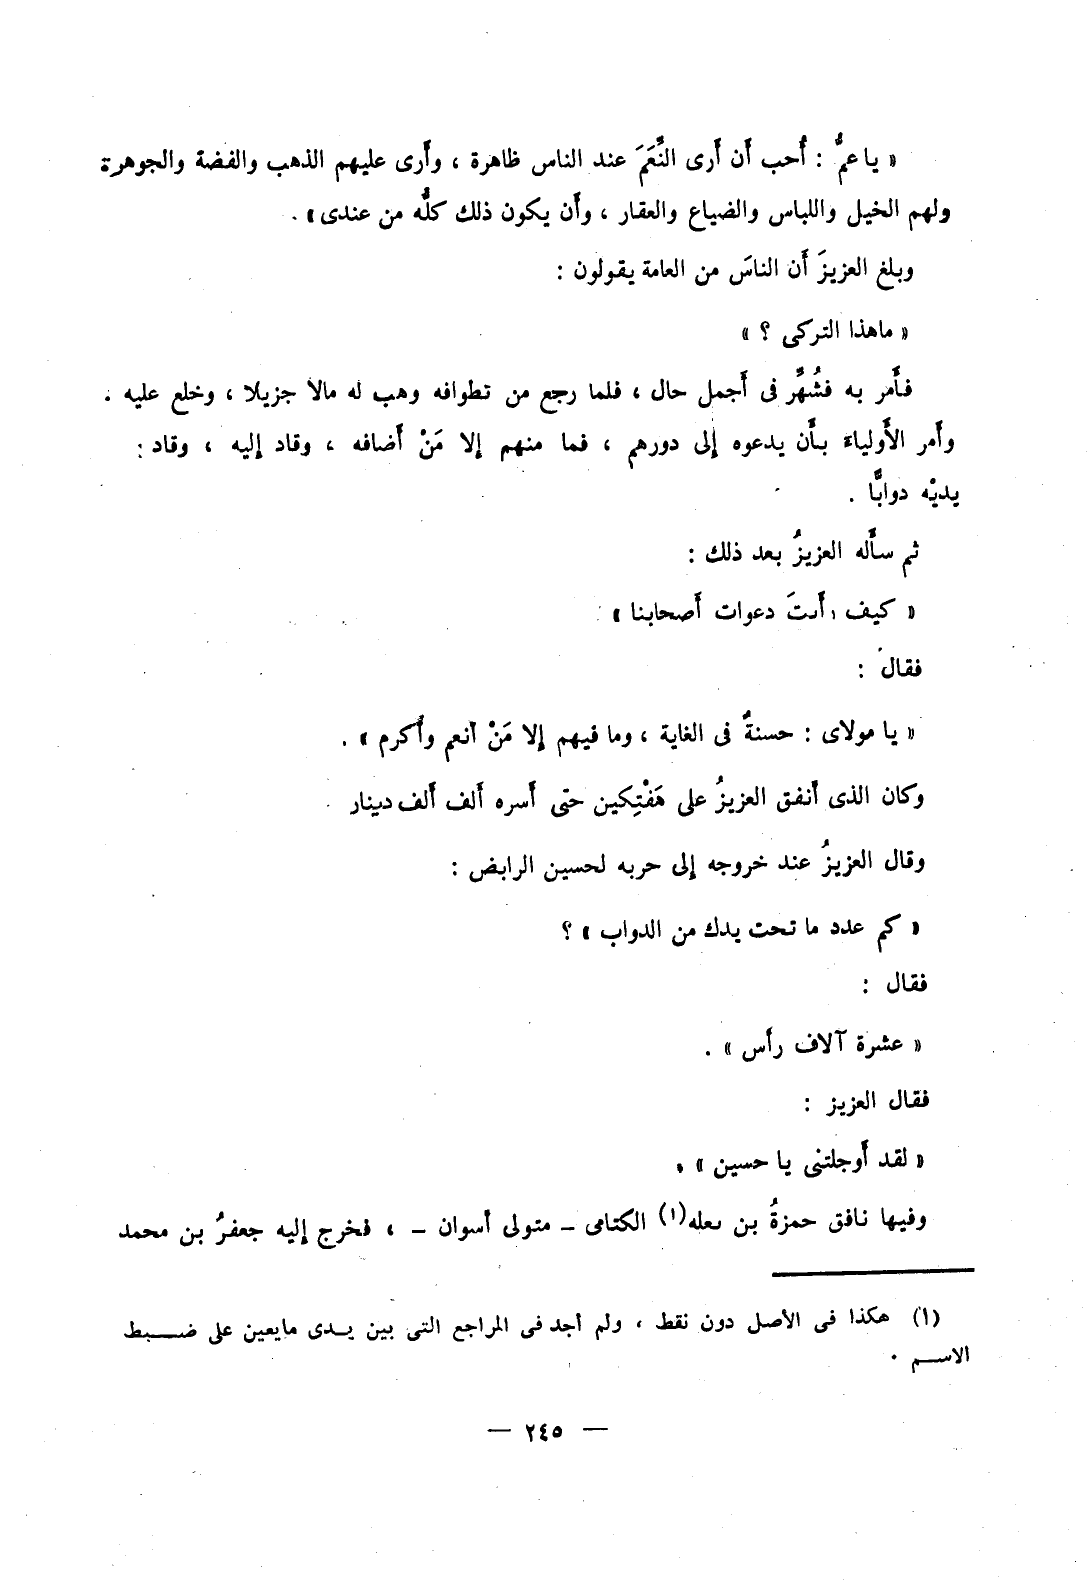 « ياعمُّ : أُحب أن أرى النِّعَمَ عند الناس ظاهرة ، وأَرى عليهم الذهب والفضة والجوهرة
ولهم الخيل واللباس والضياع والعقار ، وأَن يكون ذلك كلُّه من عندى » .
وبلغ العزيزَ أَن الناسَ من العامة يقولون :
« ماهذا التركى ؟ »
فأَمر به فشُهِّر فى أَجمل حال ، فلما رجع من تطوافه وهب له مالا جزيلا ، وخلع عليه .
وأَمر الأَولياءَ بأَن يدعوه إلى دورهم ، فما منهم إلا مَنْ أَضافه ، وقاد إليه ، وقاد :
يديْه دوابًّا .
ثم سأَله العزيزُ بعد ذلك :
« كيف رأيتَ دعوات أَصحابنا »
فقال :
« يا مولاى : حسنةٌ فى الغاية ، وما فيهم إلا مَنْ أنعم وأَكرم » .
وكان الذى أنفق العزيزُ على هَفْتِكين حتى أَسره أَلف أَلف دينار
وقال العزيزُ عند خروجه إلى حربه لحسين الرابض :
« كم عدد ما تحت يدك من الدواب » ؟
فقال :
« عشرة آلاف رأَس » .
فقال العزيز :
« لقد أَوجلتنى يا حسين » .
وفيها نافق حمزةُ بن ٮعله(١) الكتامى – متولى أسوان – ، فخرج إليه جعفرُ بن محمد
(١) هكذا فى الأصل دون نقط ، ولم أجد فى المراجع التى بين يدى مايعين على ضبط
الاسم .
— ٢٤٥ —